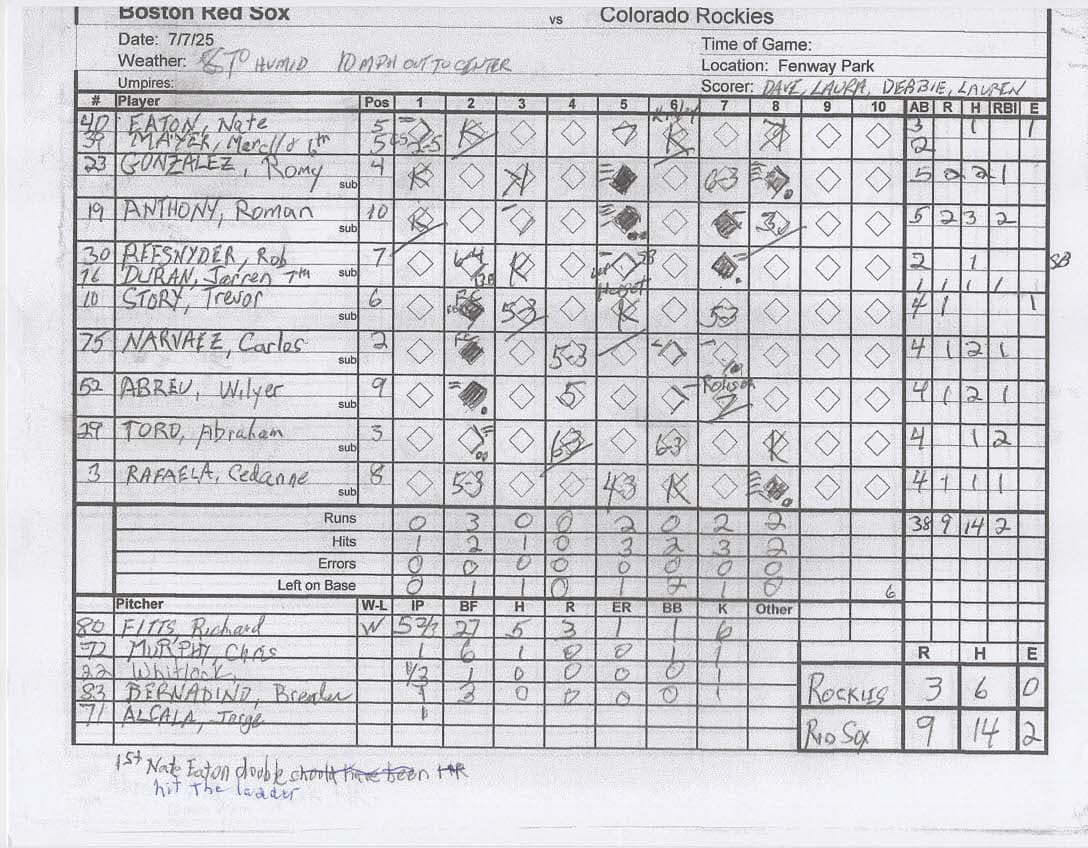 Boston Red Sox vs Colorado Rockies
Date: 7/7/25
Time of Game:
Weather: HUMID 10 MPH OUT TO CENTER
Location: Fenway Park
Umpires:
Scorer: DAVE, LAURA, DEBBIE, LAUREN
# Player Pos 1 2 3 4 5 6 7 8 9 10 AB R H RBI E
40 EATON, Nate 5 K K 3 1 1
39 MAYER, 6th 5 2
23 GONZALEZ, Romy sub 4 K K 6-3 5 2 2 1
19 ANTHONY, Roman sub 10 K 5 2 3 2
30 REFSNYDER, Rob 7 6-4 K SB 2 1 SB
16 DURAN, Jarren 7th sub 1 1 1 1
10 STORY, Trevor sub 6 FC 5-3 K 5-3 4 1 1
75 NARVAEZ, Carlos sub 2 FC 5-3 4 1 2 1
52 ABREU, Wilyer sub 9 5 7 4 1 2 1
29 TORO, Abraham sub 3 6-3 6-3 K 4 1 2
3 RAFAELA, Cedanne sub 8 5-3 4-3 K 4 1 1 1
Runs 0 3 0 0 2 0 2 2 38 9 14 2
Hits 1 2 1 0 3 2 3 2
Errors 0 0 0 0 0 0 0 0
Left on Base 0 1 1 0 1 2 1 0 6
Pitcher W-L IP BF H R ER BB K Other
80 FITTS, Richard W 5 2/3 27 5 3 1 1 6
72 MURPHY, Chris 1 6 1 0 0 1 1
22 Whitlock, 1/3 1 0 0 0 0 1
83 BERNADINO, Brenden 1 3 0 0 0 0 1
71 ALCALA, Jorge 1
R H E
ROCKIES 3 6 0
RED SOX 9 14 2
1st Nate Eaton double should have been HR
hit the ladder